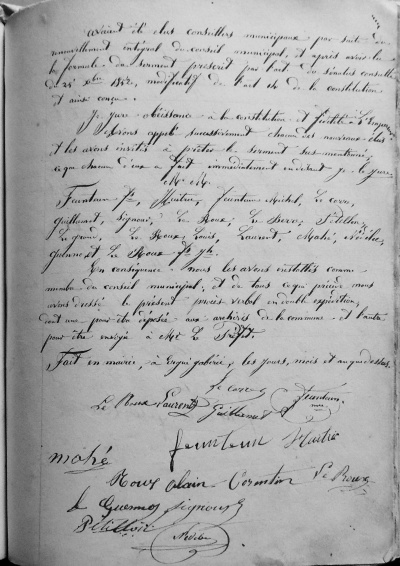 avaient été élus conseillers municipaux par suite du
renouvellement intégral du conseil municipal, et après avoir lu
la formule du serment prescrit par l'art du sénatus consulte
du 25 xbre 1852, modificatif de l'art 14 de la constitution
et ainsi conçue :
Je jure obéissance à la constitution et fidélité à l'Empereur
avons appelé successivement chacun des nouveaux élus
et les avons invités à prêter le serment sus mentionné,
ce que chacun d'eux a fait immédiatement en disant : je le jure,
M. M.
Feunteun Fs, Huitric, Feunteun Michel, Le Corre,
Guillimit, Signour, Le Roux, Le Berre, Pétillon,
Le grand, Le Roux Louis, Laurent, Mahé, Nédélec,
et Le Roux
En conséquence nous les avons installés comme
membres du conseil municipal, et de tout ce que prévu nous
avons dressé le présent procès verbal en double expédition,
dont une pour être déposée aux archives de la commune et l'autre
pour être envoyée à Mr Le Préfet.
Fait en mairie, à Ergué gabéric, les jours, mois et an que dessus,
Le Corre
Le Roux Laurent Guillimit Feunteun
feunteun Huitric
mahé
Roux alain Corentin Le Roux
Le Guennec Signour
Pétillon
Nédélec